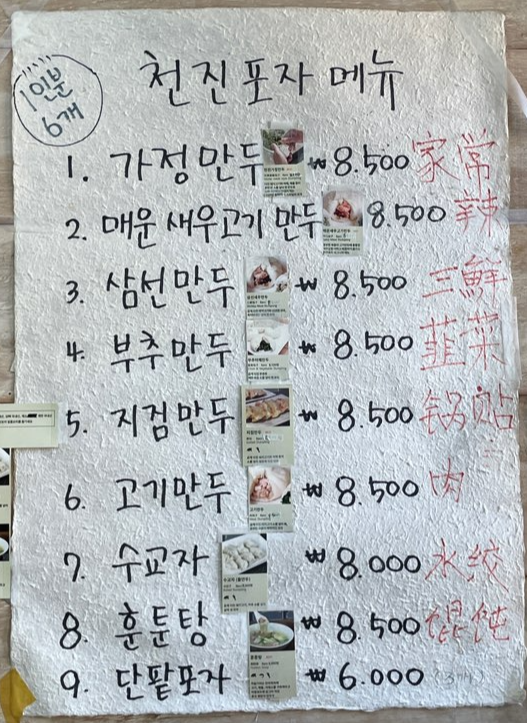 1인분
6개
천진포자 메뉴
1. 가정만두 ₩ 8.500 家常
2. 매운 새우고기 만두 8.500 辣
3. 삼선만두 ₩ 8.500 三鮮
4. 부추만두 ₩ 8.500 韮菜
5. 지점만두 ₩ 8.500 锅贴
6. 고기만두 ₩ 8.500 肉
7. 수교자 ₩ 8.000 水绞
8. 훈툰탕 ₩ 8.500 馄饨
9. 단팥포자 ₩ 6.000